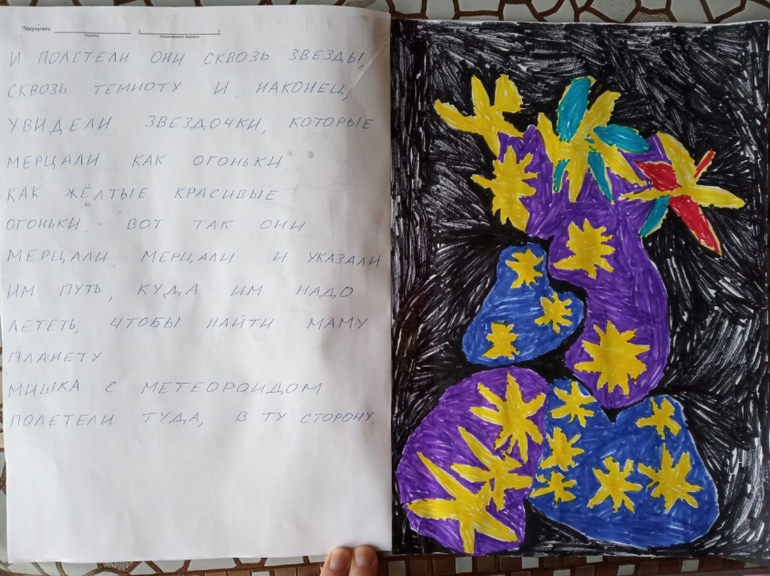 Покупатель
И ПОЛЕТЕЛИ ОНИ СКВОЗЬ ЗВЕЗДЫ,
СКВОЗЬ ТЕМНОТУ И, НАКОНЕЦ,
УВИДЕЛИ ЗВЕЗДОЧКИ, КОТОРЫЕ
МЕРЦАЛИ КАК ОГОНЬКИ
КАК ЖЁЛТЫЕ КРАСИВЫЕ
ОГОНЬКИ. ВОТ ТАК ОНИ
МЕРЦАЛИ, МЕРЦАЛИ И УКАЗАЛИ
ИМ ПУТЬ, КУДА ИМ НАДО
ЛЕТЕТЬ, ЧТОБЫ НАЙТИ МАМУ
ПЛАНЕТУ.
МИШКА С МЕТЕОРОИДОМ
ПОЛЕТЕЛИ ТУДА, В ТУ СТОРОНУ.